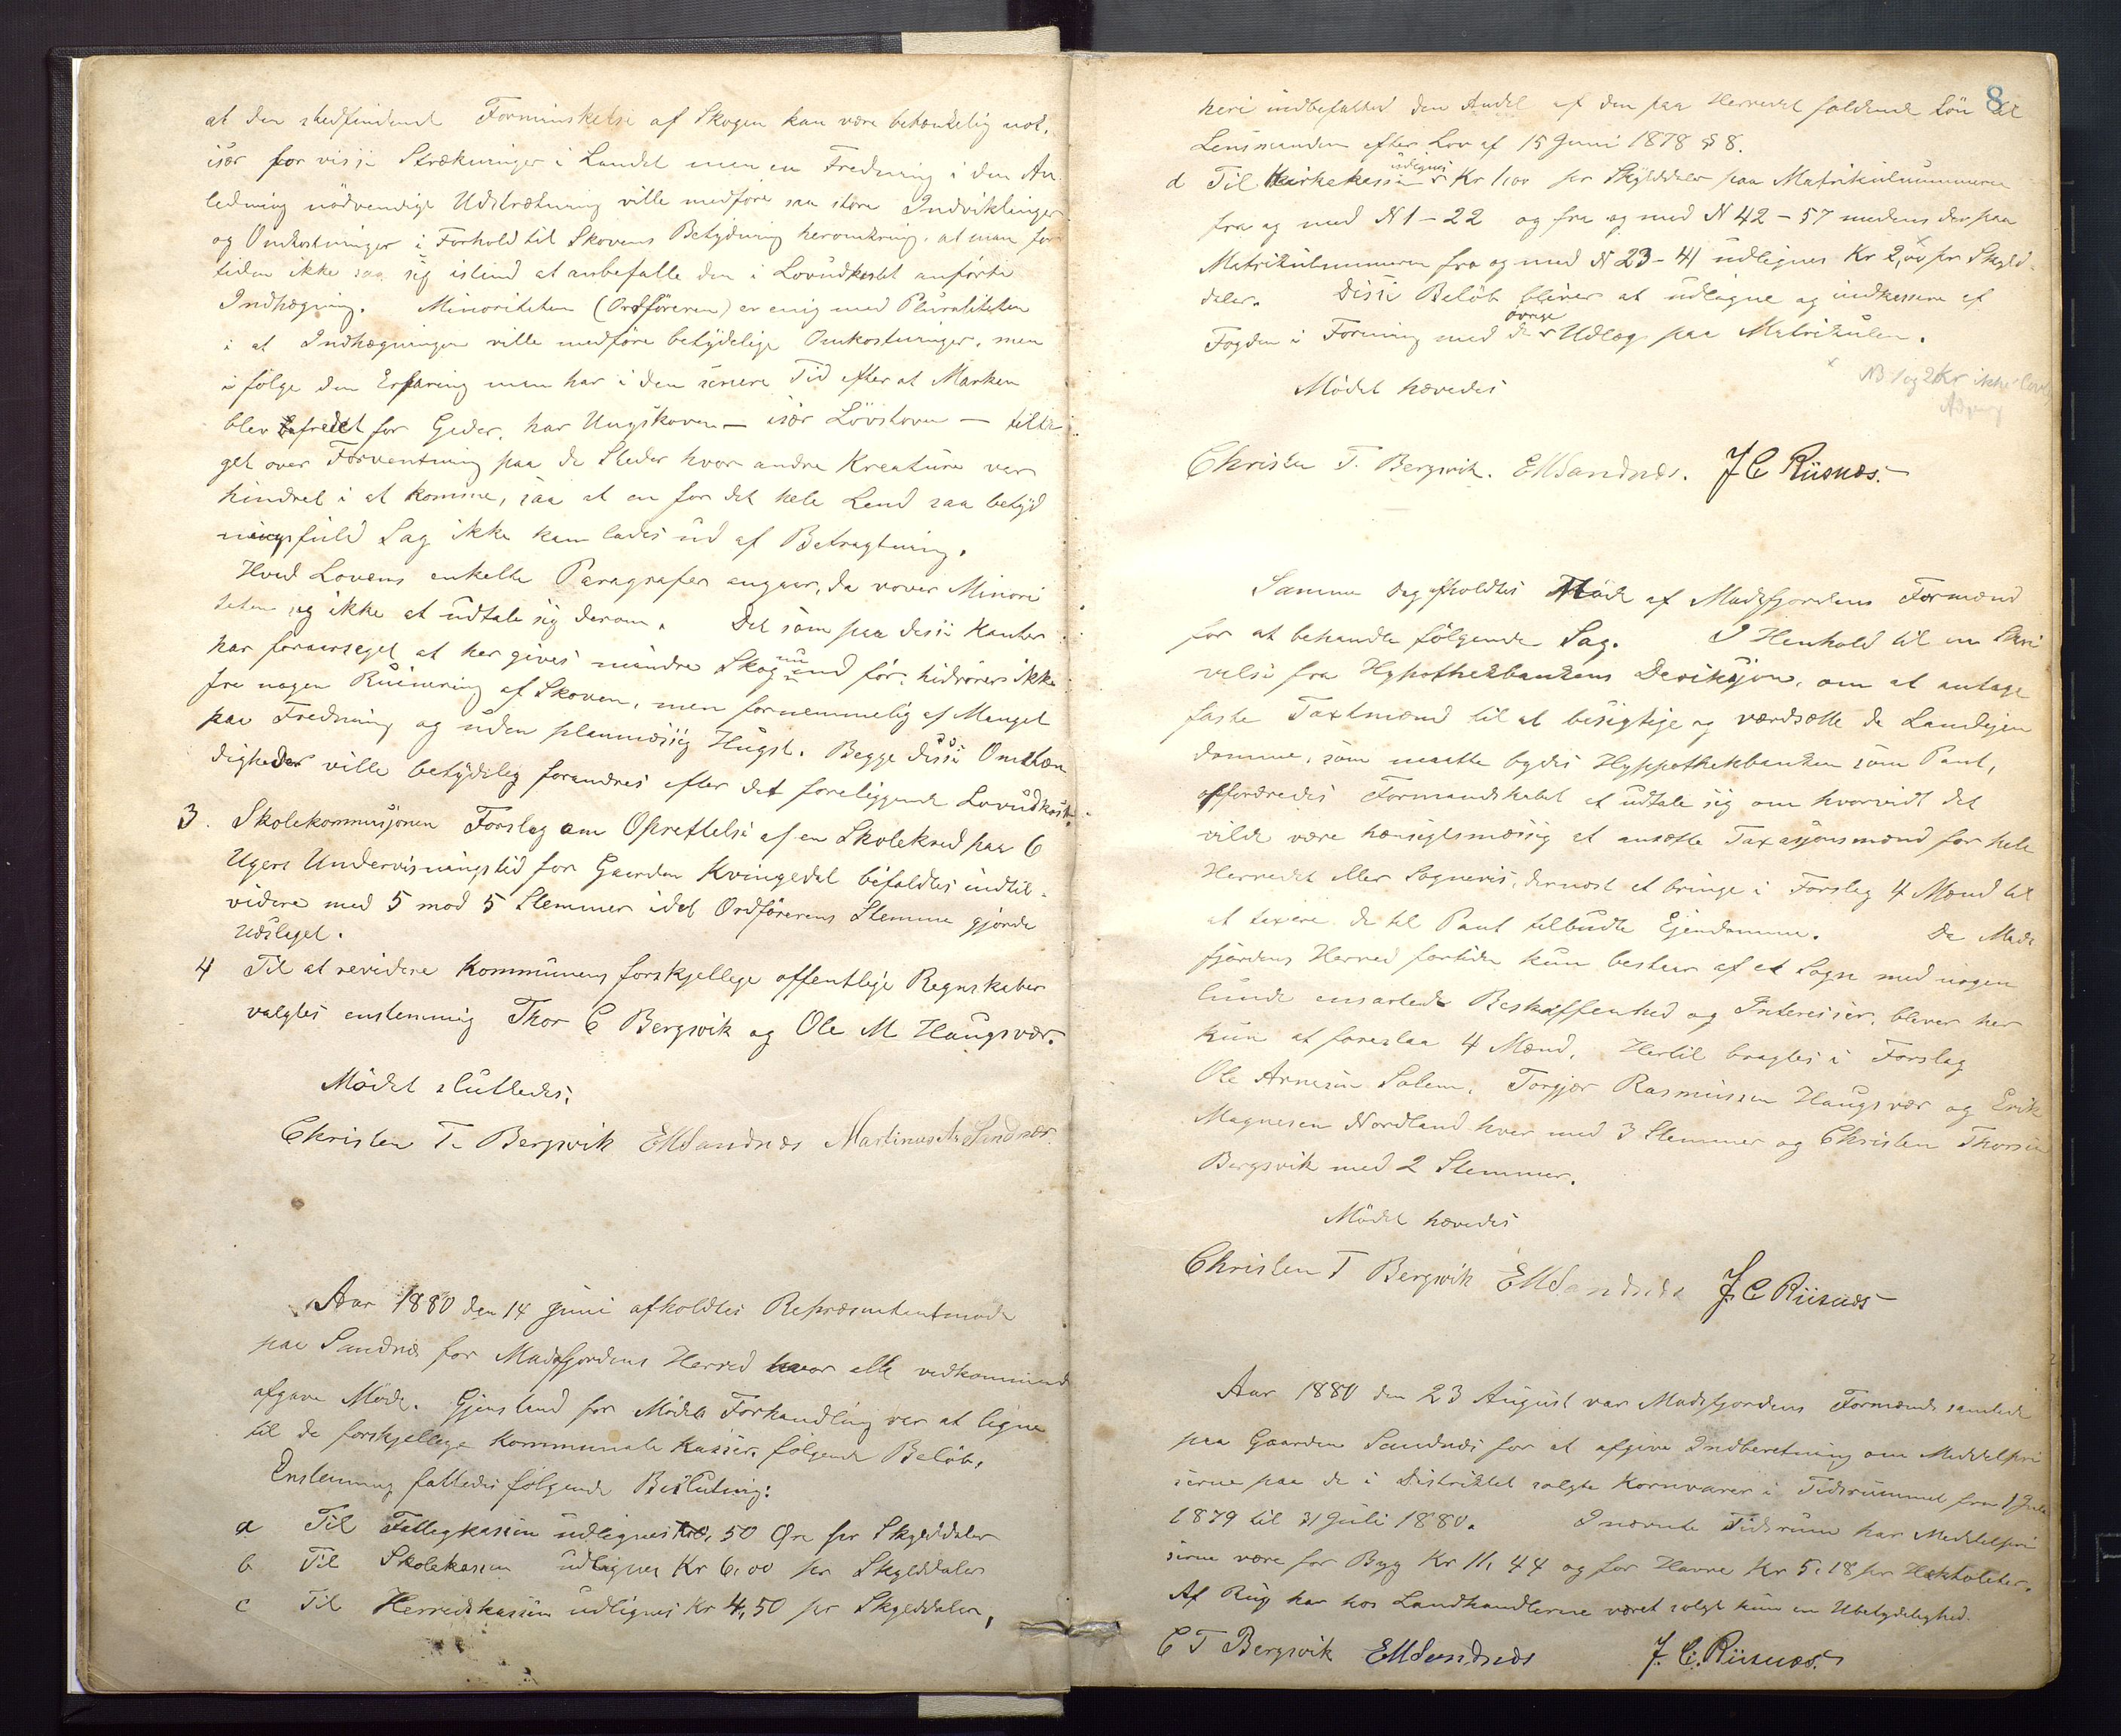 at den stedfindende Forminskelse af Skogen kan være betænkelig nok,
især for visse Strækninger i Landet men en Fredning i den An
ledning nödvendige Udstrætning ville medföre saa störe Indviklinger
og Omkostninger i Forhold til Skovens Betydning heromkring, at man for
tiden ikke saa sig istand at anbefalle den i Lovudkastet anförte
Indhægning. Minoriteten (Ordföreren) er enig med Pluraliteten
i at Indhægningen ville medföre betydelige Omkostninger, men
i fölge den Erfaring man har i den senere Tid efter at Marken
blev befredet for Geder, har Ungskoven – især Lövskoven – tilta
get over Forventning paa de Steder hvor andre Kreature var
hindret i at komme, saa at en for det hele Land saa betyd
ningsfuld Sag ikke kan lades ud af Betragtning.
Hvad Lovens enkelte Paragrafer angaar, da vover Minori
teten sig ikke at udtale sig derom. Det som paa disse Kanter
har foraarsaget at her gives mindre Skog nu end för, hidrörer ikke
fra nogen Ruinering af Skoven, men fornemmelig af Mangel
paa Fredning og uden planmæsig Hugst. Begge disse Omstæn
digheder ville betydelig forandres efter det foreliggende Lovudkast.
3. Skolekommisjonen Forslag om Oprettelse af en Skolekred paa 6
Ugers Undervisningstid for Gaarden Kvingedal bifaldtes indtil-
videre med 5 mod 5 Stemmer idet Ordförerens Stemme gjorde
Udslaget.
4 Til at revidere Kommunens forskjellege offentlige Regnskaber
valgtes enstemmig Thor C Bergsvik og Ole M Haugsvær.
Mödet sluttedes.
Christen T. Bergsvik EMSandnæs Martinus As Sandnæs
Aar 1880 den 14 Juni afholdtes Repræsentantmöde
paa Sandnæs for Masfjordens Herred hvor alle vedkommende
afgave Möde. Gjenstand for Mödets Forhandling var at ligne
til de forskjellege Kommunale Kasser, fölgende Belöb.
Enstemmig fattedes fölgende Beslutning:
a Til Fattigkassen udlignes 50 Öre pr Skylddaler
b Til Skolekassen udlignes Kr 6,00 pr Skylddaler
c Til Herredskassen udlignes Kr 4,50 pr Skylddaler,
8
heri indbefatted den Andel af den paa Herredet faldende Lön til
Lensmanden efter Lov af 15 Juni 1878 § 8.
d Til Kirkekassen udlignes Kr 1,00 pr Skylddaler paa Matrikulnummerne
fra og med N 1 – 22 og fra og med N 42 – 57 medens der paa
Matrikulnummeren fra og med N 23 – 41 udlignes Kr 2,00 pr Skyld-
daler. Disse Belöb bliver at udlagne og indkassere af
Fogden i Forening med de övrige Udlæg paa Matrikulen.
Mödet hævedes
NB 1 og 2 Kr ikke
Christen T. Bergsvik. EMSandnæs. J C Riisnæs.
Samme Dag afholdtes Möde af Masfjordens Formænd
for at behandle fölgende Sag. I Henhold til en Skri
velse fra Hypothekbankens Dereksjon, om at antage
faste Taxtmænd til at besigtige og værdsætte de Landejen
domme, som maatte bydes Hyppothekbanken som Pant,
opfordredes Formandskabet at udtale sig om hvorvidt det
vilde være hensigtsmæssig at ansætte Taxasjonsmænd for hele
Herredet eller Sognevis, dernæst at bringe i Forslag 4 Mænd til
at taxere de til Pant tilbudte Ejendomme. Da Mas
fjordens Herred fortiden kun bestaar af et Sogn med nogen
lunde ensartede Beskaffenhed og Interesser, bliver her
kun at foreslaa 4 Mænd. Hertil bragtes i Forslag
Ole Arnesen Solem, Torgjer Rasmussen Haugsvær og Erik
Magnesen Nordland hver med 3 Stemmer og Christen Thorsen
Bergsvik med 2 Stemmer.
Mödet hævedes
Christen T Bergsvik EMSandnæs J. C Riisnæs
Aar 1880 den 23 August var Masfjordens Formænd samlede
paa Gaarden Sandnæs for at afgive Indberetning om Middelpri
serne paa de i Distriktet solgte Kornvarer i Tidsrummet fra 1 Juli
1879 til 31 Juli 1880. I nævnte Tidsrum har Middelpri
serne være for Byg Kr 11,44 og for Havre Kr 5,18 pr Hektoliter.
Af Rug har hos Landhandlerne været solgt kun en Ubetydelighed.
C T Bergsvik EMSandnæs J. C. Riisnæs.